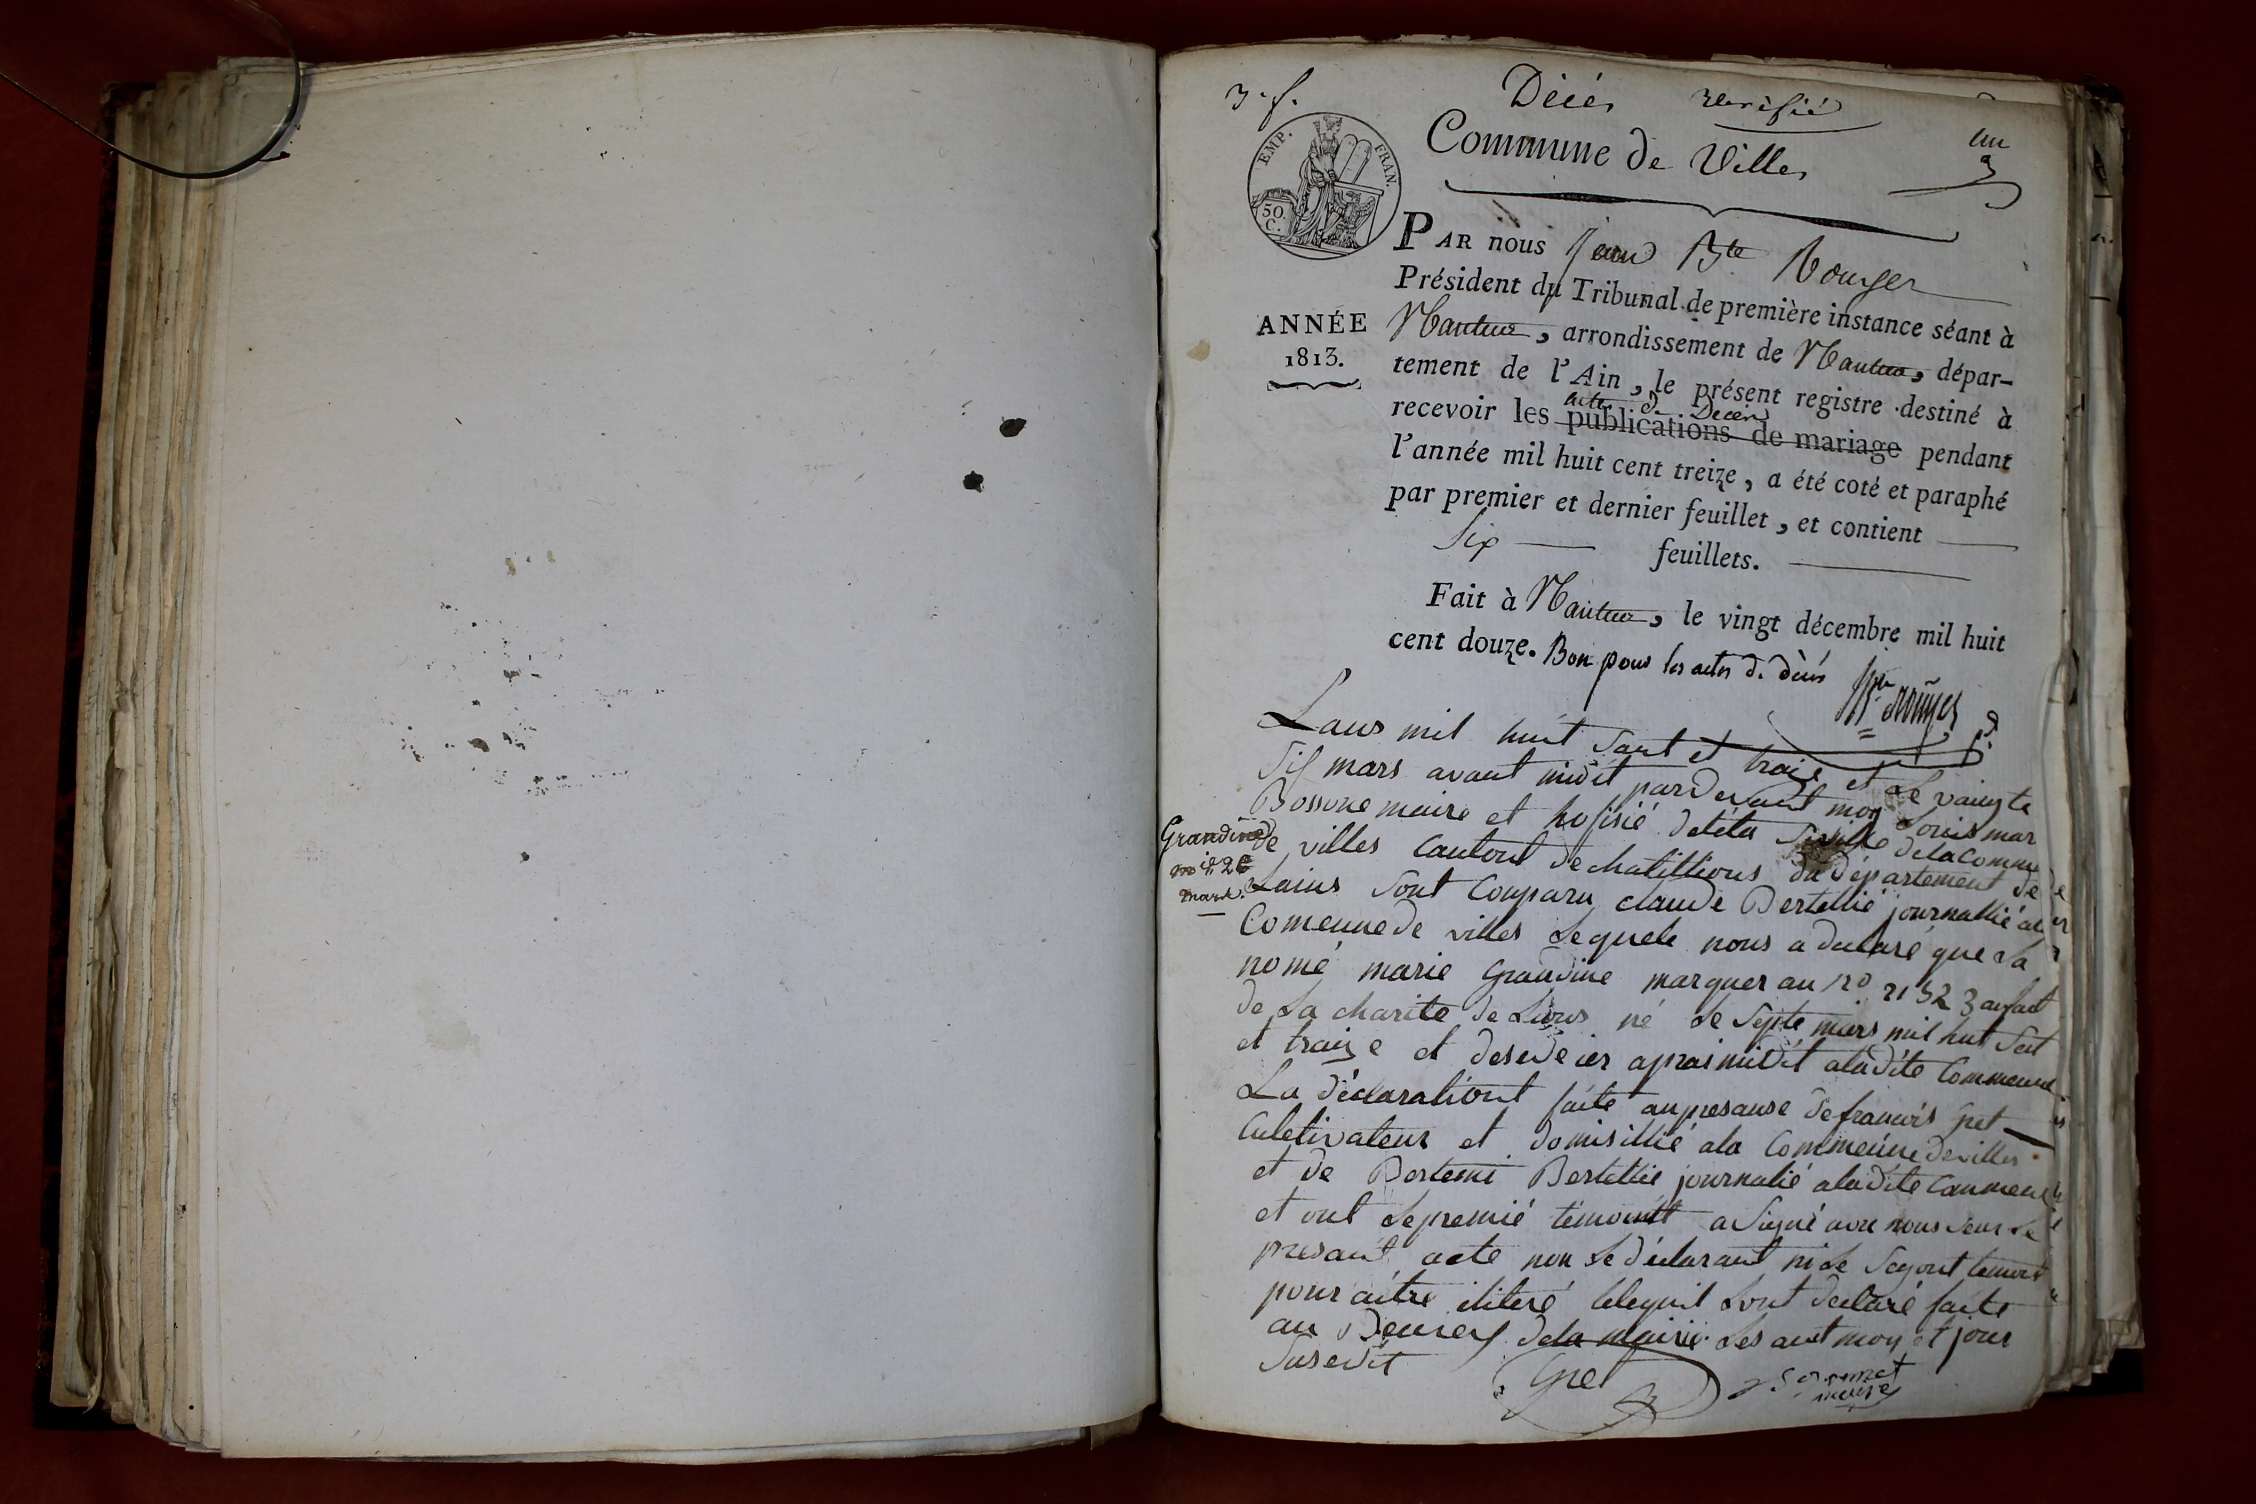 3. f.
Décés vérifié
un
Commune de Villes
EMP. FRAN.
50. C.
PAR nous Jean Bte Rouyer
Président du Tribunal de première instance séant à
Nantua, arrondissement de Nantua, dépar-
tement de l'Ain, le présent registre destiné à
actes de Décès
recevoir les publications de mariage pendant
l'année mil huit cent treize, a été coté et paraphé
par premier et dernier feuillet, et contient
six feuillets.
ANNÉE
1813.
Fait à Nantua, le vingt décembre mil huit
cent douze. Bon pour les actes de décés
Rouyer
Laus mil huit sant et traize et Le vaingte
sis mars avant midit pardevant moy Louis mar
Bossone maire et hofisié detéta siville dela Commune
de villes Cantont de chatillions du département de
Lains sont Conparu claude Bertellié journallié a la
Comeune de villes Lequele nous a declaré que La
nomé marie Grandine marquer au no 21323 anfant
de La charite de Lions né Le septe mars mil huit sent
et traize et desede ier aprai midit aladite Commeune
La déclarationt faite anpresanse de francois gret
Culetivateur et domisillié ala Commeune devilles
et de Bertemi Bertellié journalié aladite Caumeune
et ont Lepremié témoint a signé avec nous Le
presant acte non Le déclarant ni Le segont temoint
pour aitre iliteré lelequil sont declaré faite
au Beureux dela mairie Les ant moy et jour
susedit
Gret
maire
Grandine
mars.